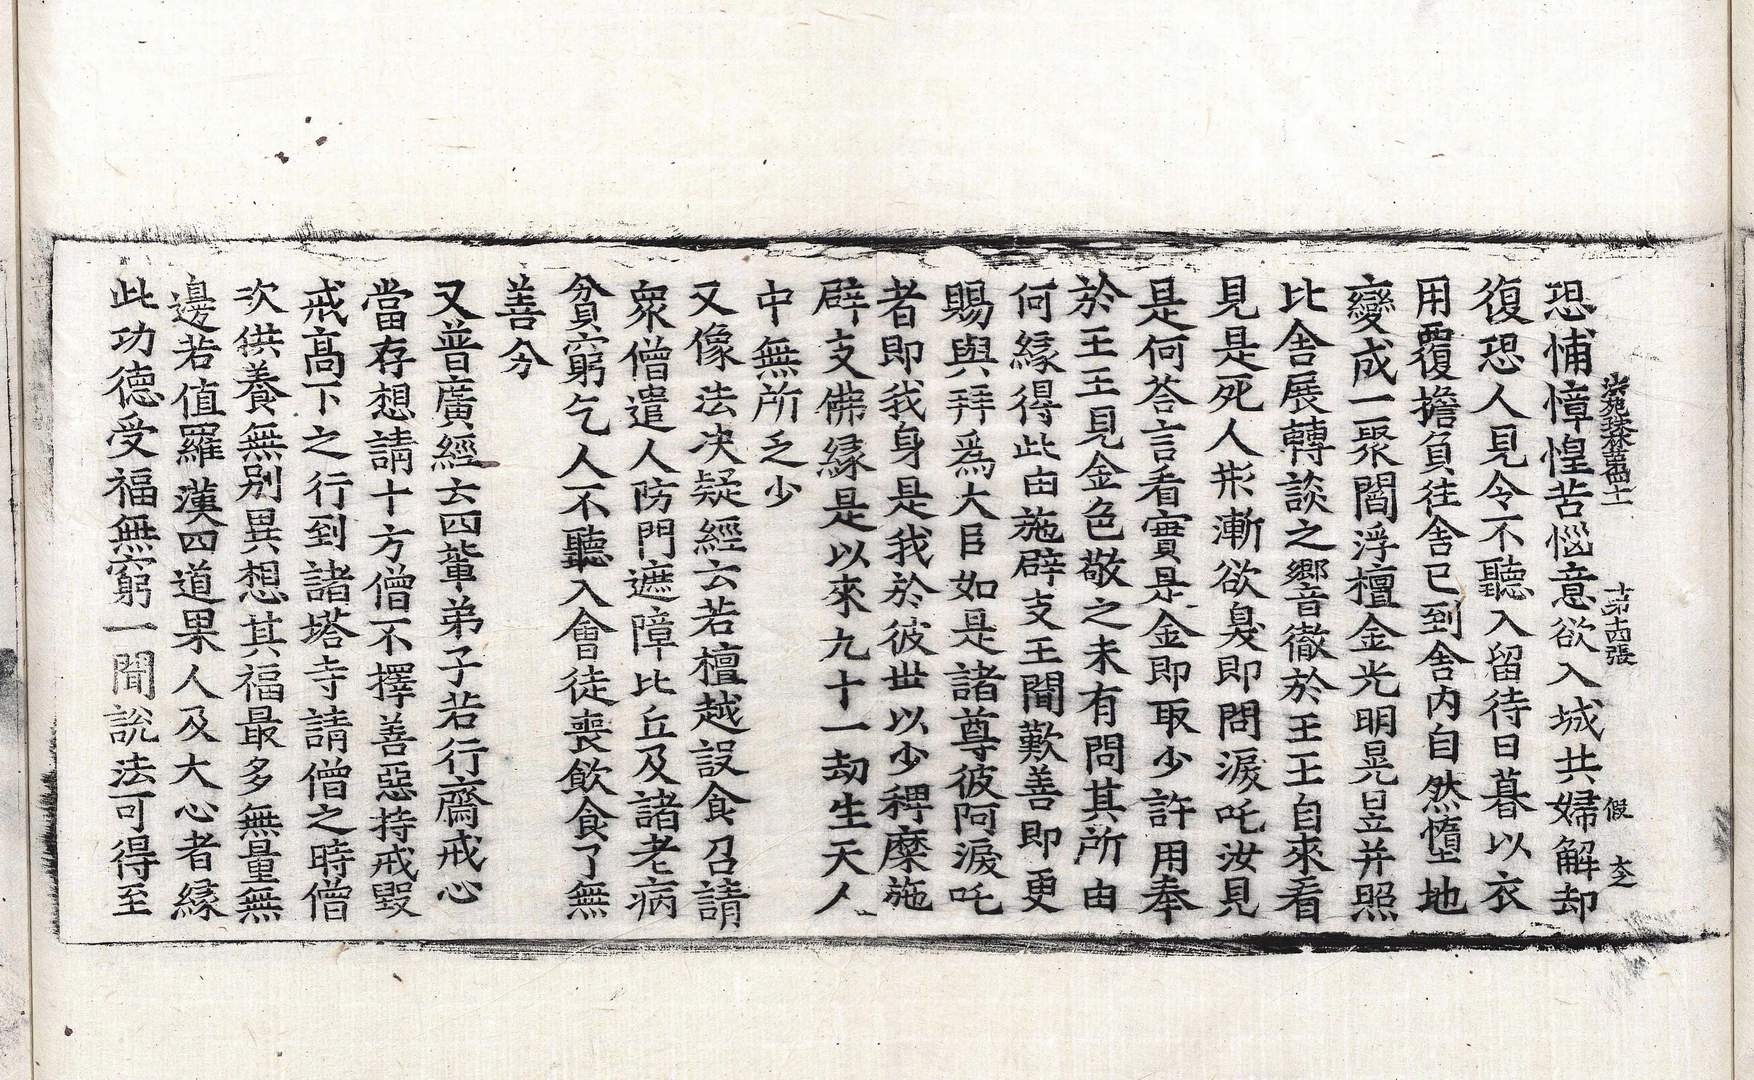 恐怖慞惶苦惱意欲入城共婦解却
復恐人見令不聽入留待日暮以衣
用覆擔負往舍已到舍內自然墮地
變成一聚閻浮檀金光明晃昱并照
比舍展轉談之響徹於王王自來看
見是死人形漸欲臭即問淚吒汝見
是何荅言看實是金即取少許用奉
於王王見金色敬之未有問其所由
何緣得此由施辟支王聞歎善即更
賜與拜爲大臣如是諸尊彼阿淚吒
者即我身是我於彼世以少稗糜施
辟支佛緣是以來九十一劫生天人
中無所乏少
又像法決疑經云若檀越設食召請
衆僧遣人防門遮障比丘及諸老病
貧窮乞人不聽入會徒喪飲食了無
善分
又普廣經云四輩弟子若行齋戒心
當存想請十方僧不擇善惡持戒毀
戒高下之行到諸塔寺請僧之時僧
次供養無別異想其福最多無量無
邊若值羅漢四道果人及大心者緣
此功德受福無窮一聞說法可得至